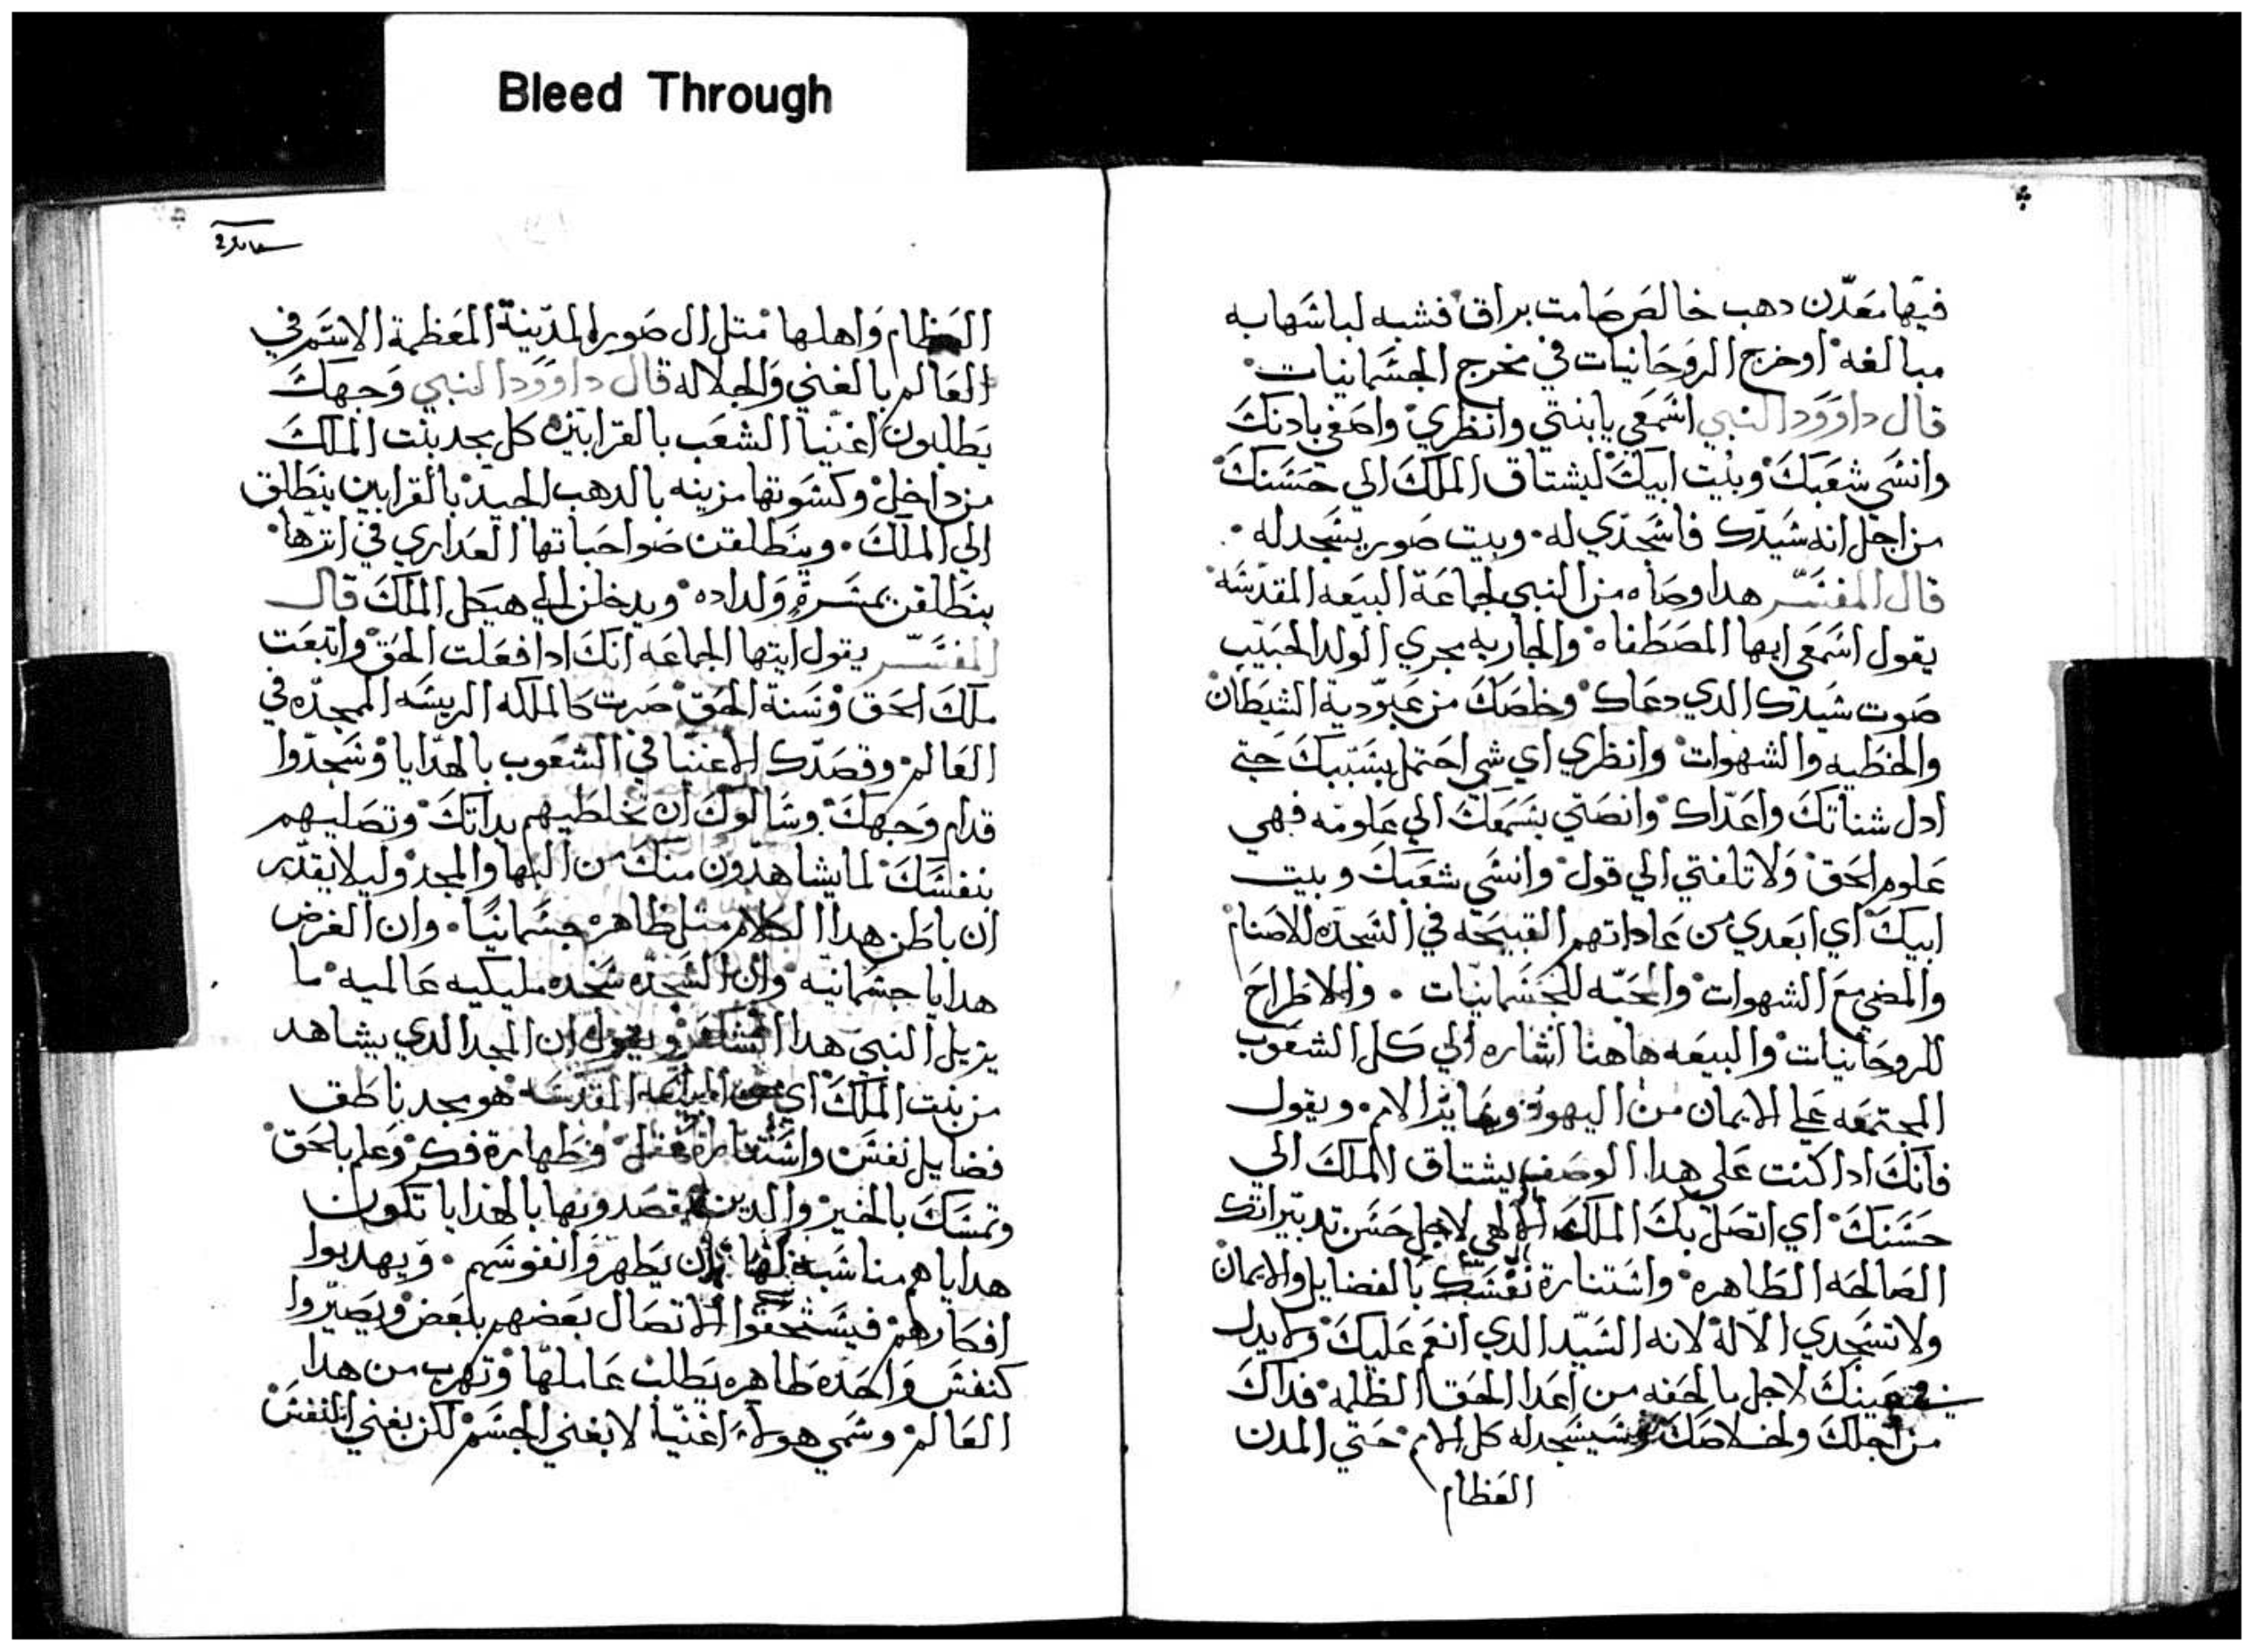 Bleed Through
فيها معدن دهب خالص صامت براق فشبه لباشها به
مبالغه اوخرج الروحانيات في مخرج الجشمانيات
قال داوود النبي اشمعي يابنتي وانظري واصغي بادنك
وانشي شعبك وبيت ابيك ليشتاق الملك الي حشنك
من اجل انه شيدك فاشجدي له وبيت صور يشجد له
قال المفشر هدا وصاه من النبي لجماعة البيعه المقدشه
يقول اشمعي ايها المصطفاه والجاريه مجري الولد الحبيب
صوت شيدك الدي دعاك وخلصك من عبودية الشيطان
والخطيه والشهوات وانظري اي شي احتمل بشببك حتي
ادل شناتك واعداك وانصتي بشمعك الي علومه فهي
علوم الحق ولا تلفتي الي قول وانشي شعبك وبيت
ابيك اي ابعدي من عاداتهم القبيحه في الشجده للاصنام
والمضي مع الشهوات والمحبه للجشمانيات والاطراح
للروحانيات والبيعه هاهنا اشاره الي كل الشعوب
المجتمعه علي الايمان من اليهود وشاير الامم ويقول
فانك ادا كنت علي هدا الوصف يشتاق الملك الي
حشنك اي اتصل بك الملك الالهي لاجل حشن تدبيراتك
الصالحه الطاهره واشتنارة نفشك بالفضايل والايمان
ولا تشجدي الا له لانه الشيد الدي انعم عليك ولا يدل
في عينك لاجل ما لحقه من اعدا الحق الظلمه فداك
من اجلك ولخلاصك وشيشجد له كل الامم حتي المدن
العظام
العظام واهلها متل ال صور المدينة المعظمة الاشم في
العالم بالغني والجلاله قال داوود النبي وجهك
يطلبون اغنيا الشعب بالقرابين كل مجد بنت الملك
من داخل وكشوتها مزينه بالدهب الجيد بالقرابين ينطلق
الي الملك وينطلقن صواحباتها العداري في اترها
ينطلقن بمشرة ولداده ويدخلن الي هيكل الملك قال
المفشر يقول ايتها الجماعه انك ادا فعلت الحق واتبعت
ملك الحق وشنة الحق صرت كالملكه الريشه الممجده في
العالم وقصدك الاغنيا في الشعوب بالهدايا وشجدوا
قدام وجهك وشالوك ان تخلطيهم بداتك وتصليهم
بنفشك لما يشاهدون منك من البها والمجد وليلا يقدر
ان باطن هدا الكلام متل ظاهره جشمانيا وان الغرض
هدايا جشمانيه وان الشجده شجده مليكيه عالميه ما
يزيل النبي هدا الشك ويقول ان المجد الدي يشاهد
من بنت الملك اي من البيعه المقدشه هو مجد ناطق
فضايل نفش واشتنارة عقل وطهارة فكر وعلم بالحق
وتمشك بالخير والدين يقصدونها بالهدايا تكون
هداياهم مناشبة لها بان يطهروا نفوشهم ويهدبوا
افكارهم فيشتحقوا الاتصال بعضهم ببعض ويصيروا
كنفش واحده طاهره يطلب عاملها وتهرب من هدا
العالم وشمي هولا اغنيا لا بغني الجشم لكن بغني النفش